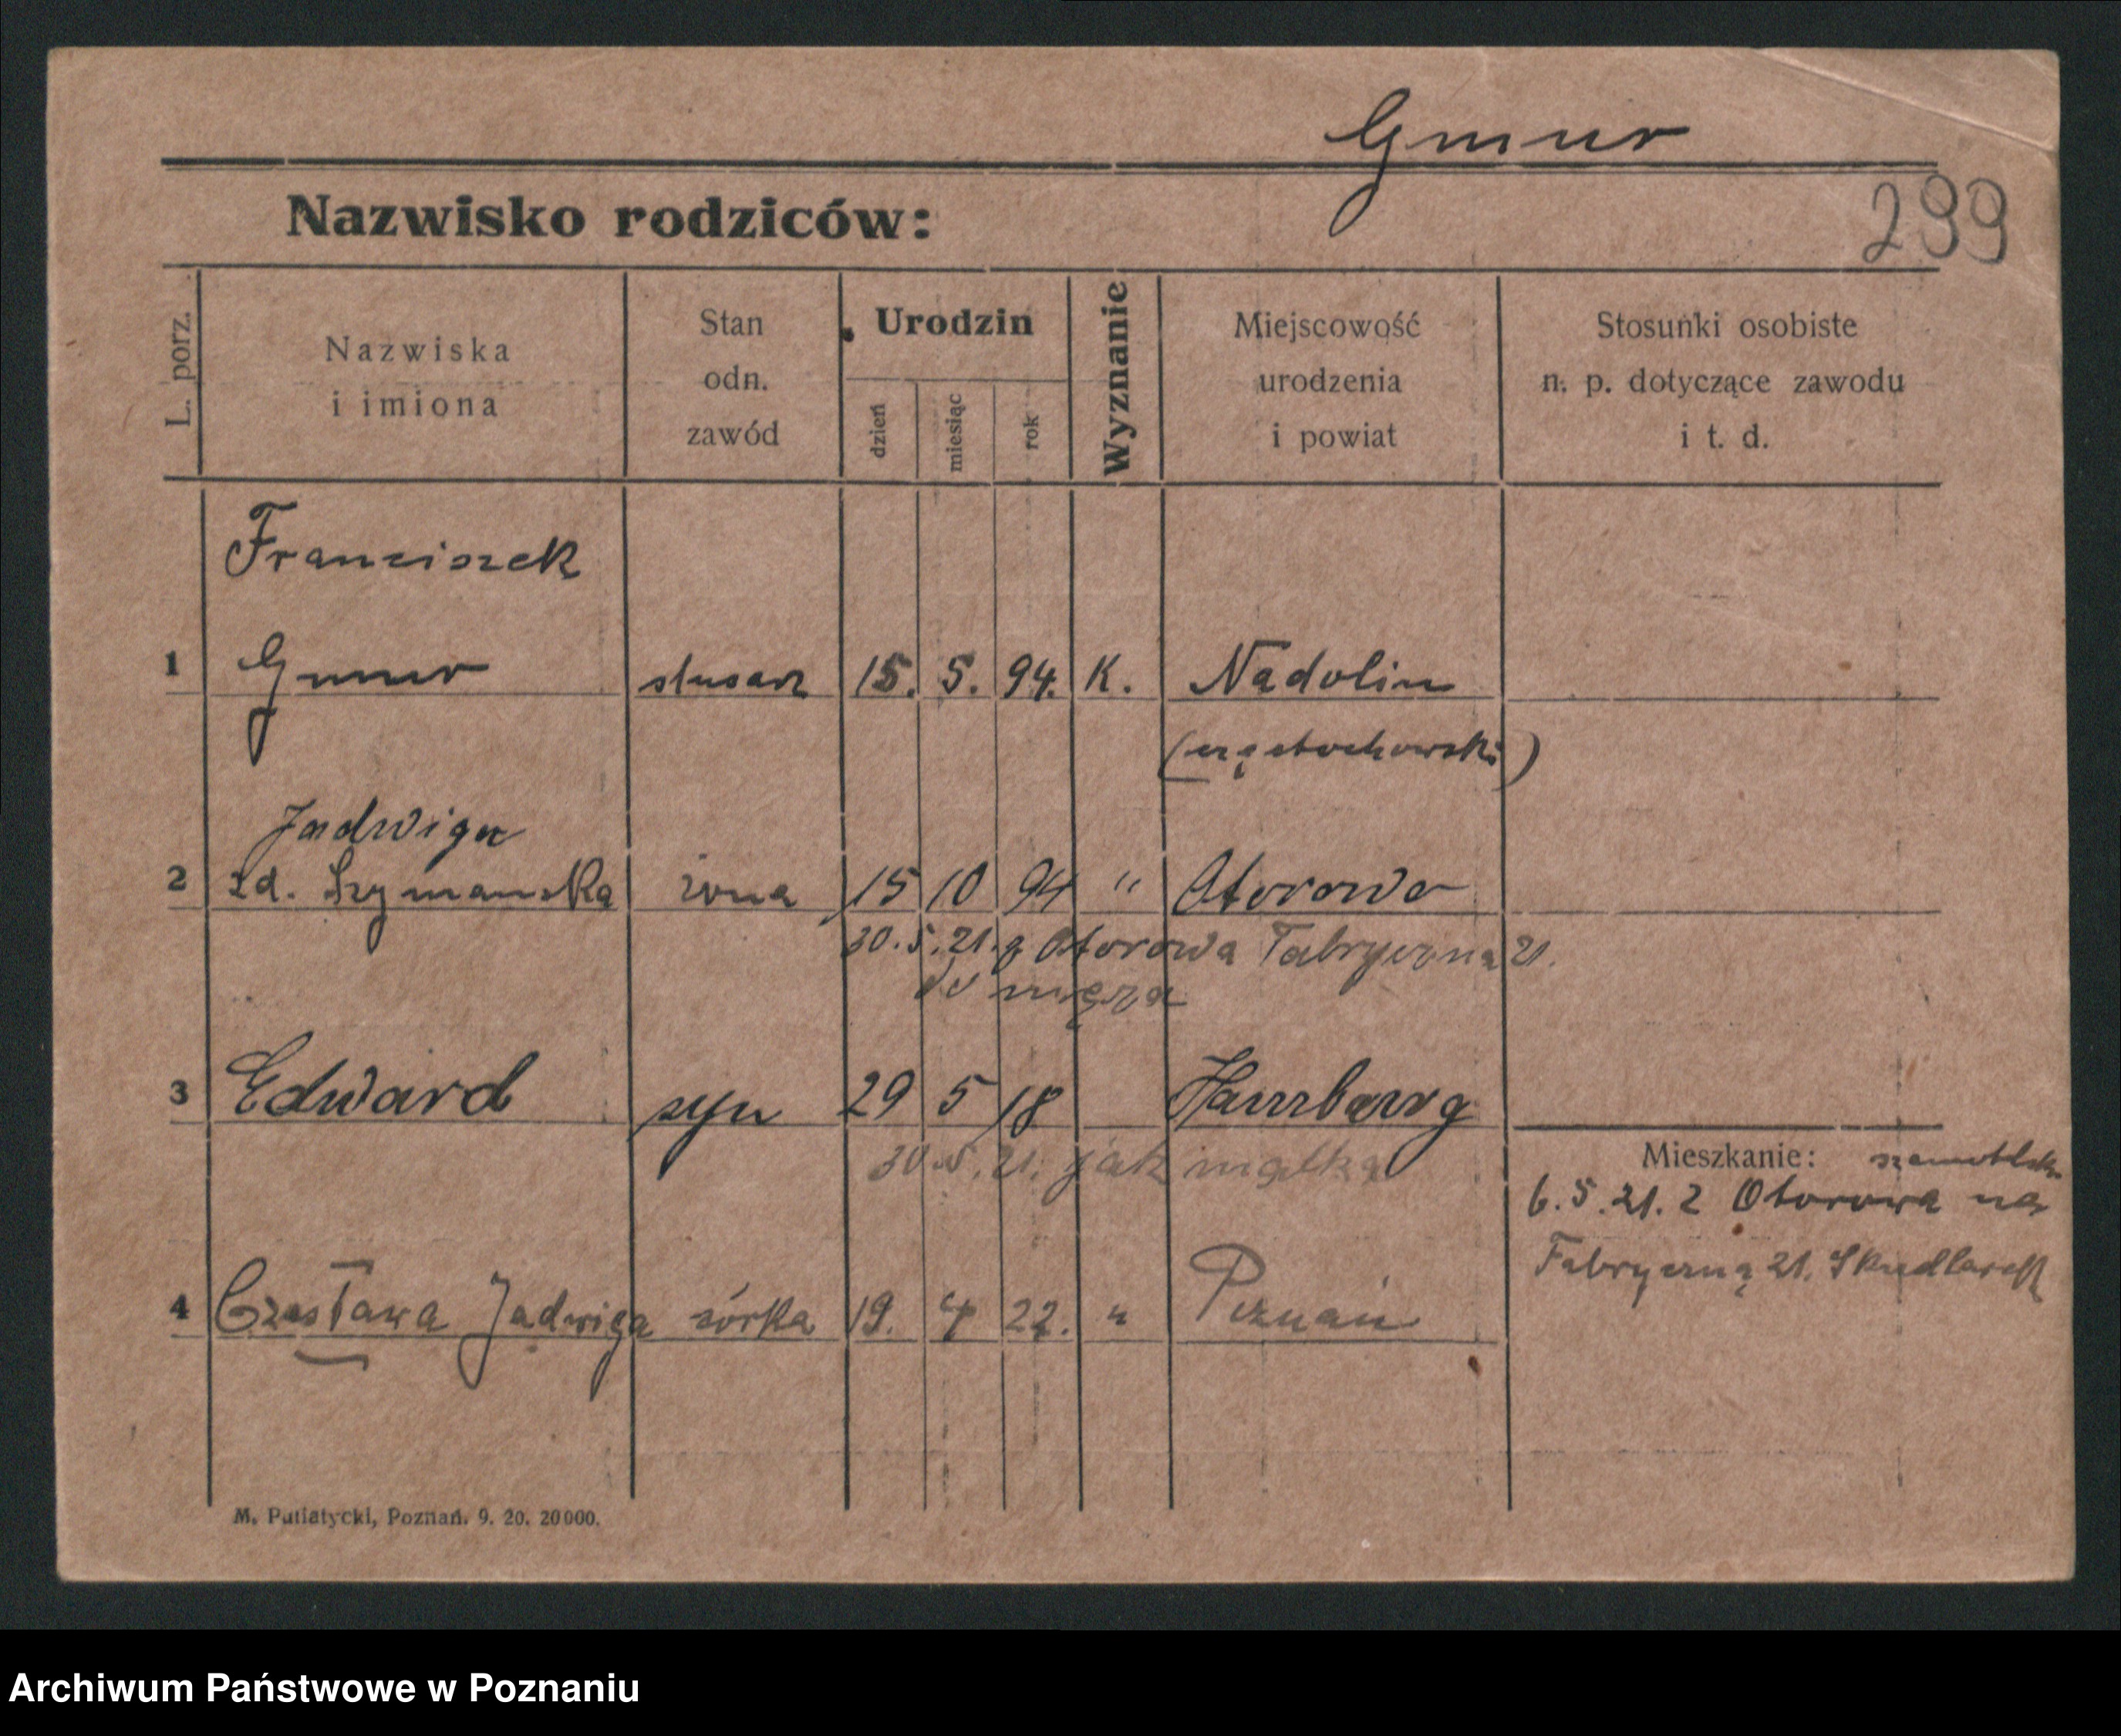 Gmur
299
Nazwisko rodziców:
L. porz.
Nazwiska
i imiona
Stan
odn.
zawód
Urodzin
dzień
miesiąc
rok
Wyznanie
Miejscowość
urodzenia
i powiat
Stosunki osobiste
n. p. dotyczące zawodu
i t. d.
Franciszek
1 Gmur slusarz 15. 5. 94. K. Nadolin
(częstochowski)
Jadwiga
2 zd. Szymanska żona 15 10 94 " Otorowo
30.5.21. z Otorowa Fabryczna 21.
do męża
3 Edward syn 29 5 18 Hamburg
30.5.21. jak matka
Mieszkanie:
6.5.21. z Otorowa na
Fabryczną 21. Skudlarek
4 Czesława Jadwiga córka 19. 4 22. " Poznań
M. Putiatycki, Poznań. 9. 20. 20000.
Archiwum Państwowe w Poznaniu